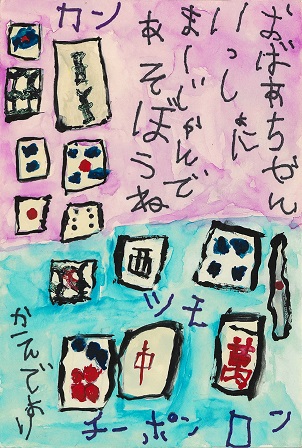 おばあちゃん
いっしょに
まーじゃんで
あそぼうね
カン
西
ツモ
中
萬
チーポン
ロン